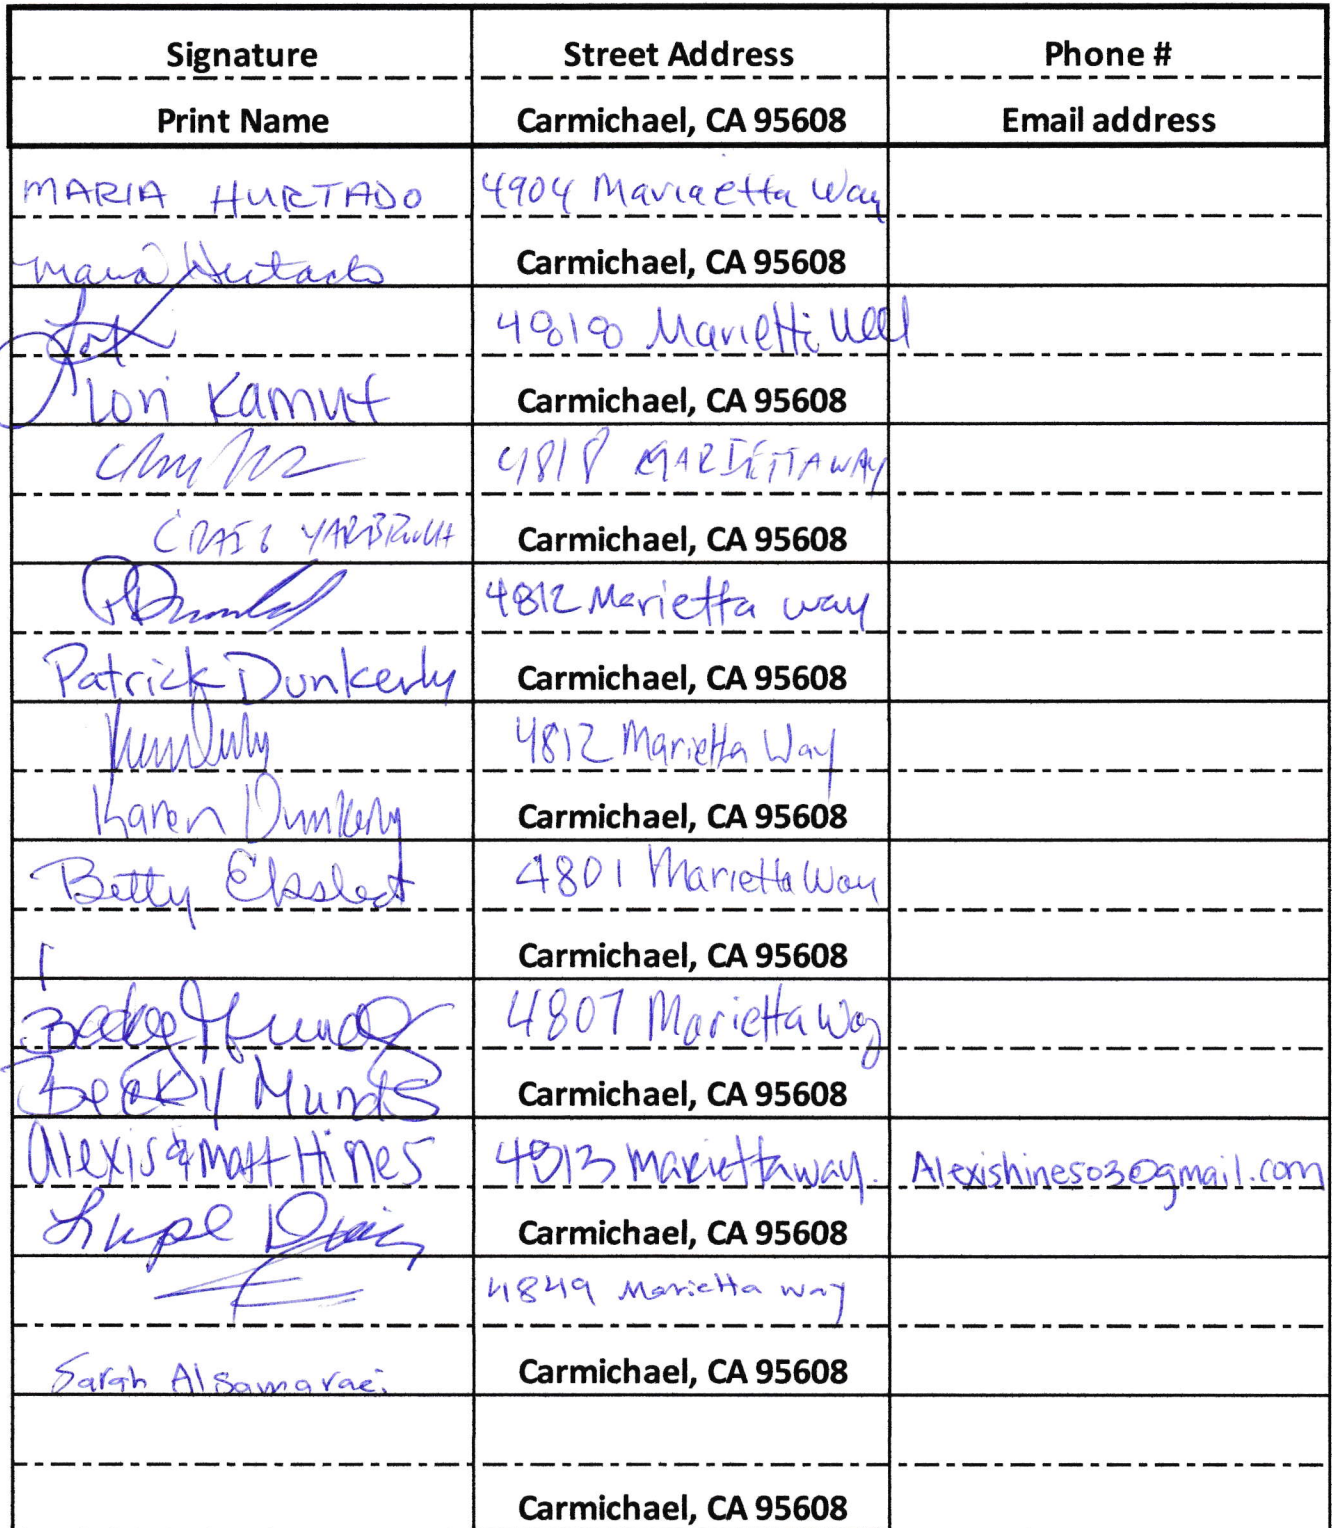 Signature Street Address Phone #
Print Name Carmichael, CA 95608 Email address
MARIA HURTADO 4904 Mariaetta Way
Maria Hurtado Carmichael, CA 95608
48180 Marietti
Lori Kamut Carmichael, CA 95608
4818 MARIETTA WAY
CRAIG Carmichael, CA 95608
4812 Marietta way
Patrick Dunkerly Carmichael, CA 95608
4812 Marietta Way
Karen Dunkerly Carmichael, CA 95608
Betty 4801 Marietta Way
Carmichael, CA 95608
Becky 4807 Marietta Way
Becky Munds Carmichael, CA 95608
Alexis & Matt Hines 4813 Marietta way. Alexishines03@gmail.com
Lupe Carmichael, CA 95608
4849 Marietta way
Sarah Alsamaraei Carmichael, CA 95608
Carmichael, CA 95608